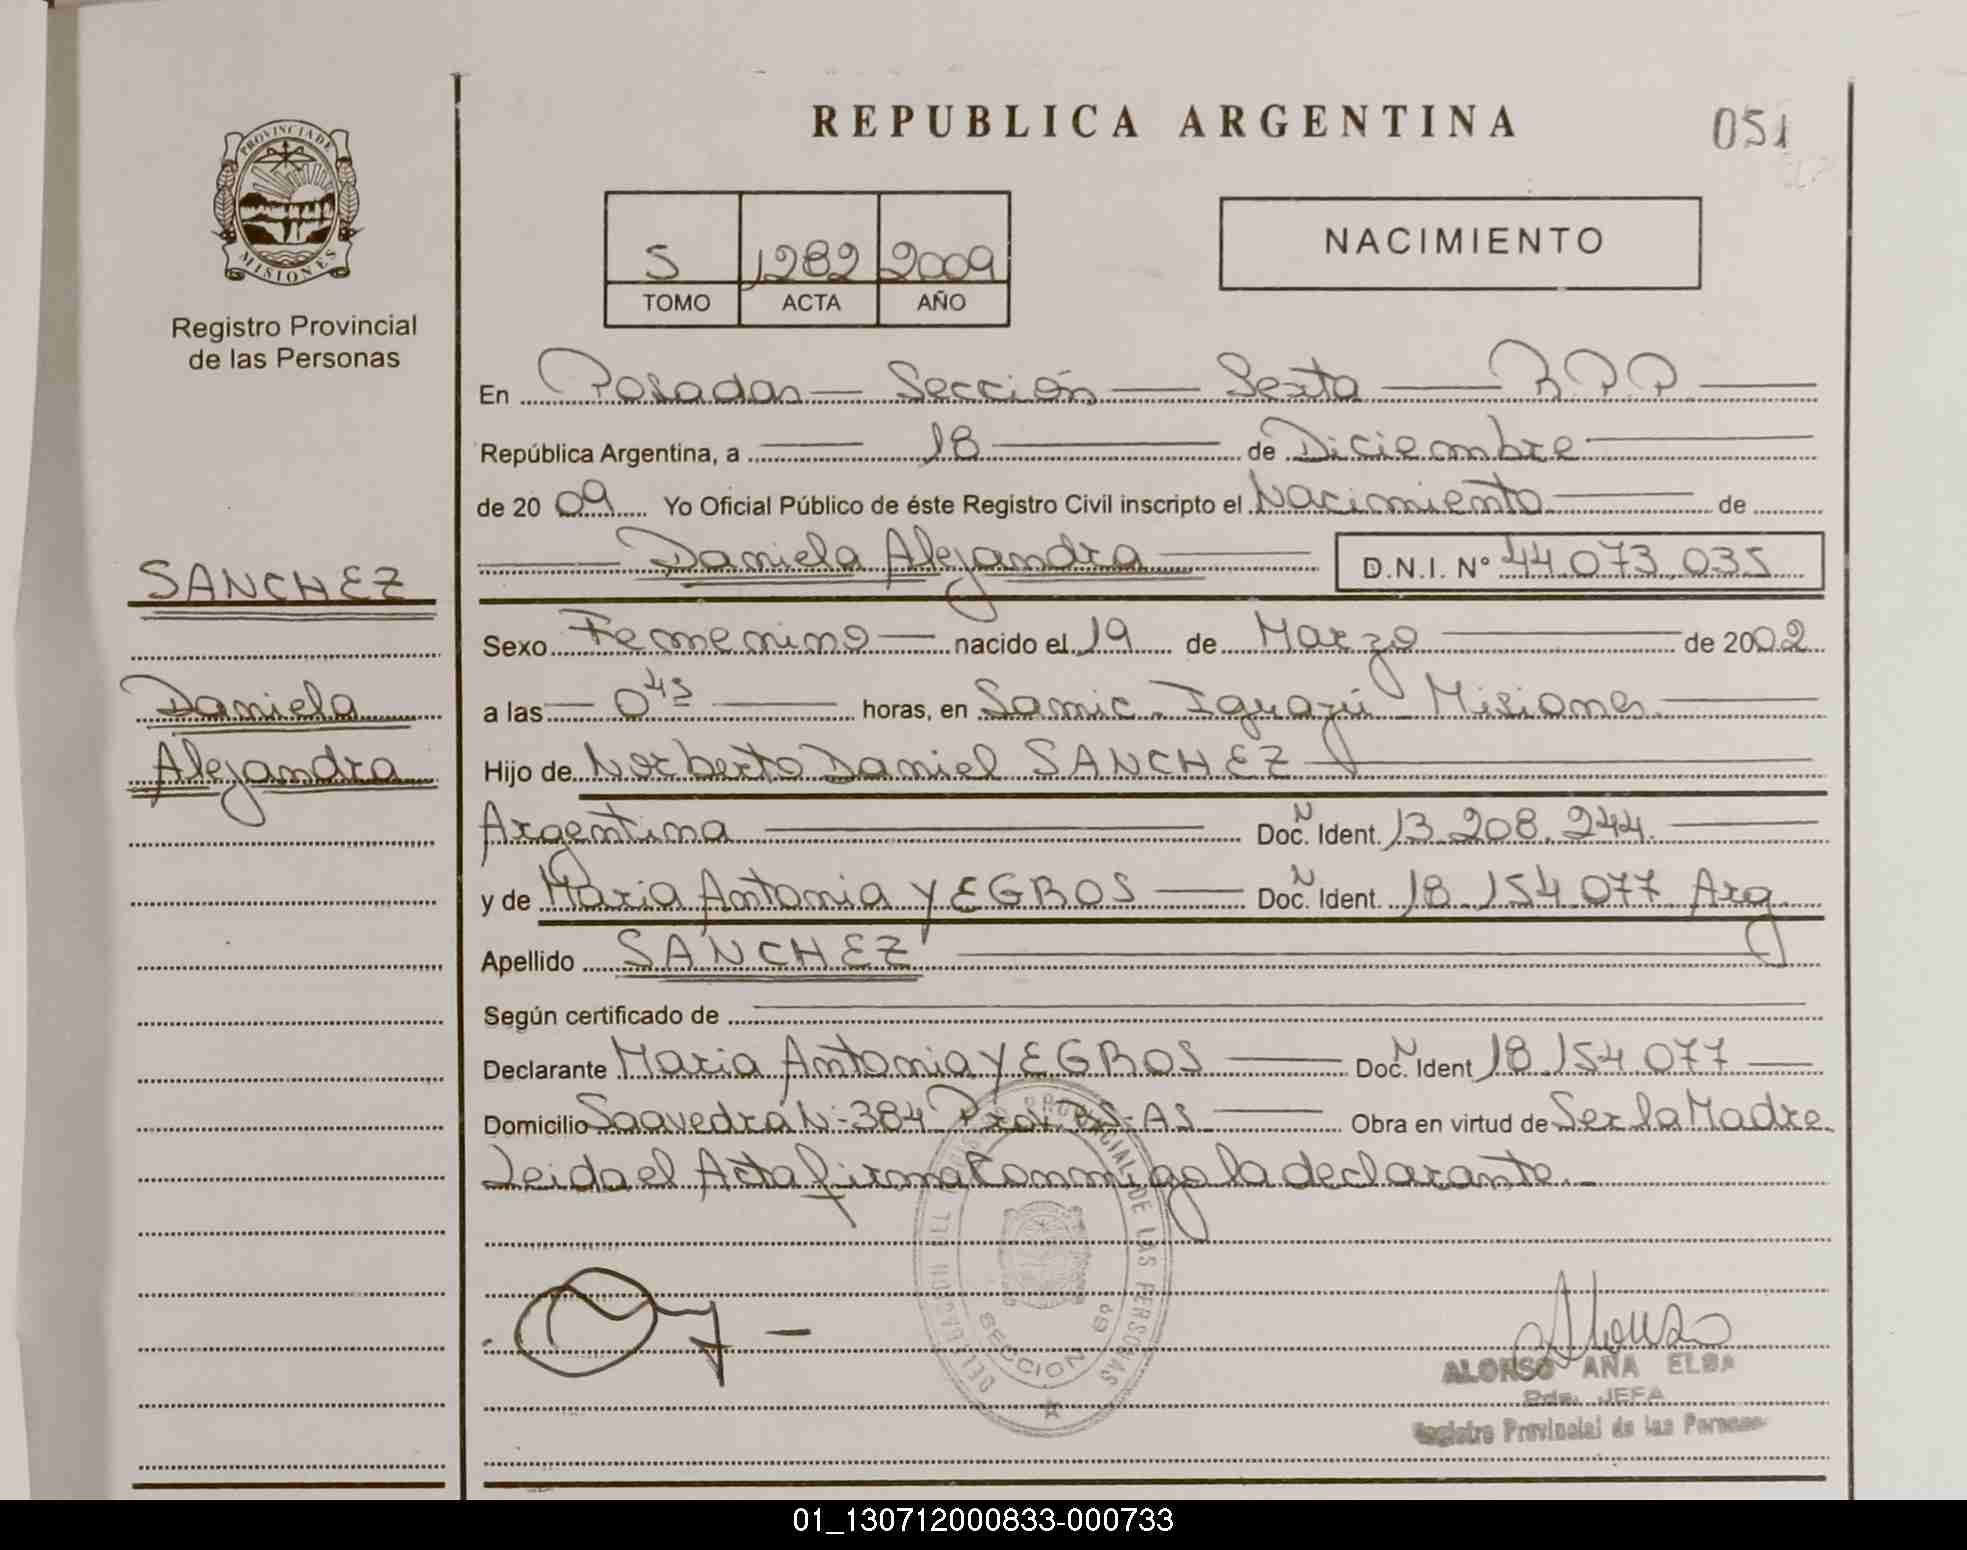 REPUBLICA ARGENTINA
051
PROVINCIA DE
MISIONES
Registro Provincial
de las Personas
5 1282 2009
TOMO ACTA AÑO
NACIMIENTO
En Posadas — Sección — Sexta — R.P.P.
República Argentina, a 18 de Diciembre
de 2009 Yo Oficial Público de éste Registro Civil inscripto el Nacimiento de
Daniela Alejandra D.N.I. N° 44.073.035
SANCHEZ
Daniela
Alejandra
Sexo Femenino — nacido el 19 de Marzo de 2002
a las — 0 45 horas, en Samic - Iguazú - Misiones
Hijo de Norberto Daniel SANCHEZ
Argentina Doc. N Ident. 13.208.244.
y de Maria Antonia YEGROS Doc. N Ident. 18.154.077 Arg.
Apellido SANCHEZ
Según certificado de
Declarante Maria Antonia YEGROS Doc. N Ident 18.154.077
Domicilio Saavedra N: 384 Prov. BS. AS. Obra en virtud de Ser la Madre
Leida el Acta firma Conmigo la declarante.
DELEGACION DEL REGISTRO PROVINCIAL DE LAS PERSONAS
SECCION 6º
ALONSO ANA ELBA
Pda. JEFA
Registro Provincial de las Personas
01_130712000833-000733